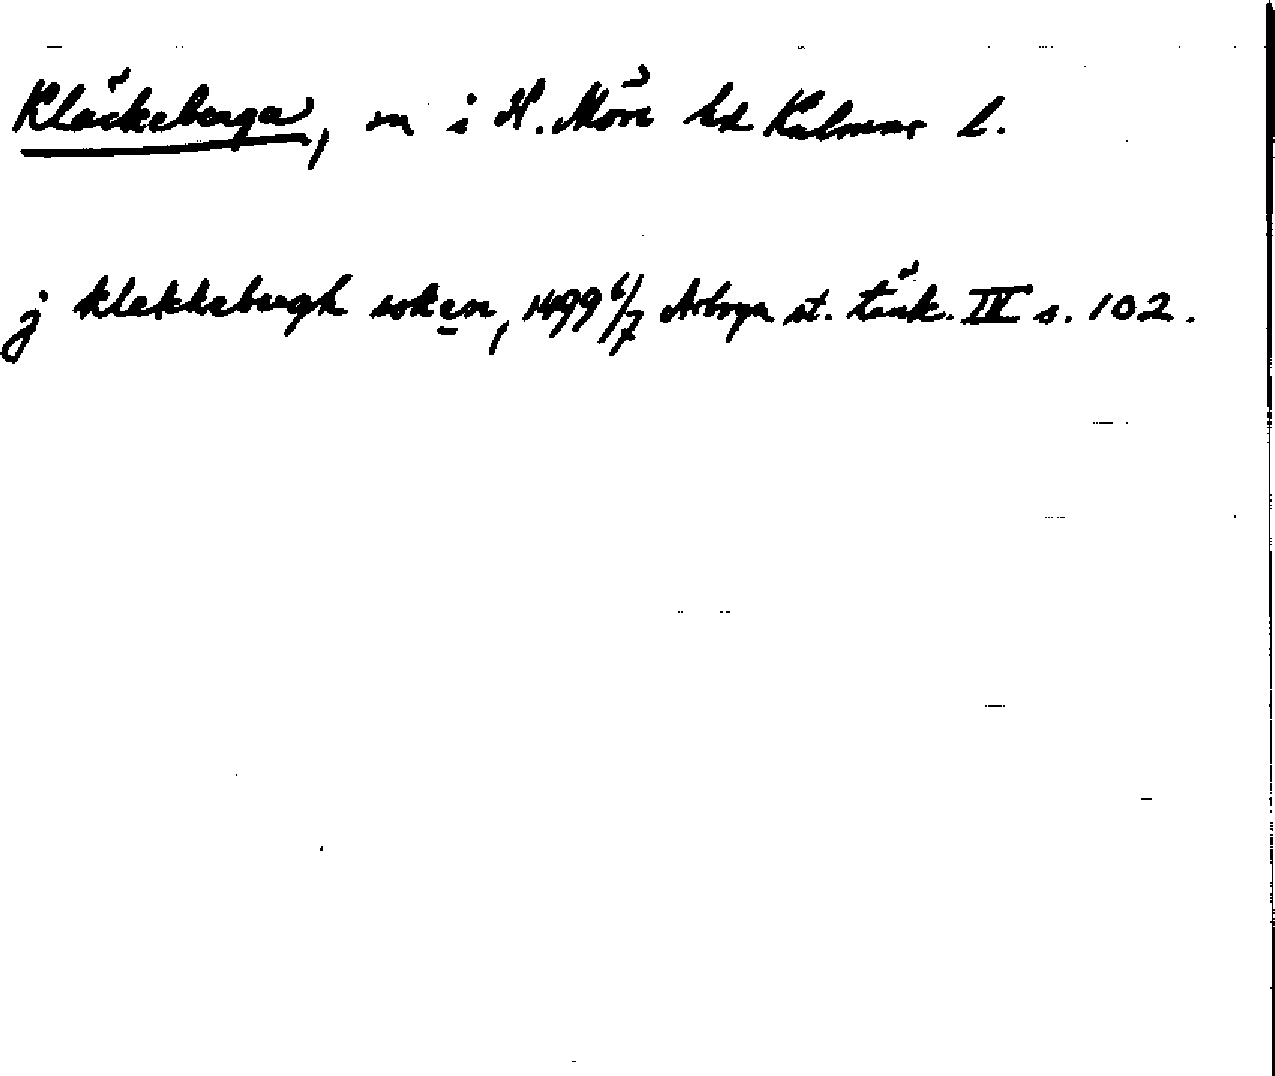 Kläckeberga, sn i N. Möre hd Kalmar l.
j klekkebergh soken, 1499 6/7 Arboga st. tänk. IV s. 102.